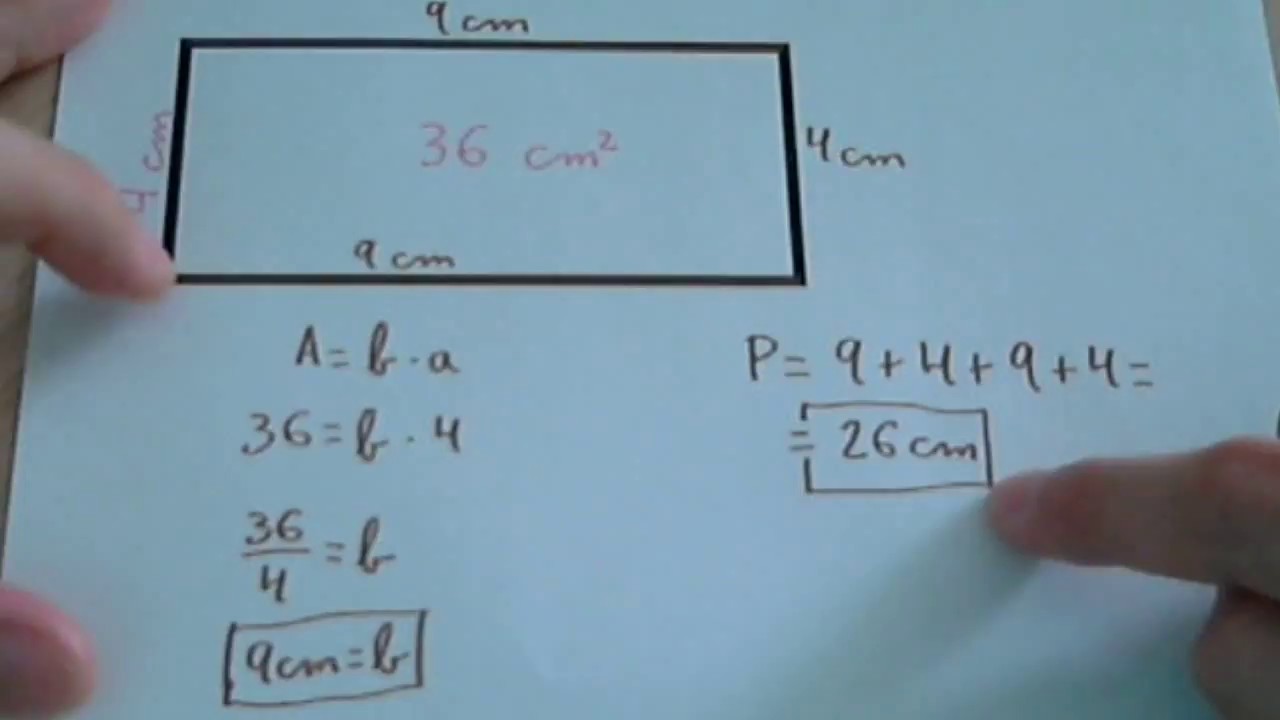 9 cm
4 cm
36 cm²
4 cm
9 cm
A = b · a
36 = b · 4
36/4 = b
9 cm = b
P = 9 + 4 + 9 + 4 =
= 26 cm